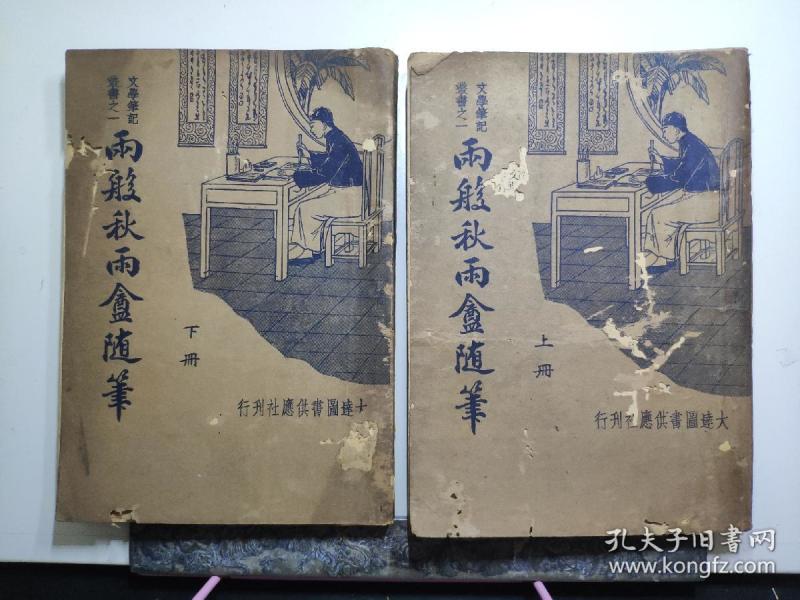 文學筆記
叢書之一
兩般秋雨盦随筆
下冊
大達圖書供應社刊行
文學筆記
叢書之一
兩般秋雨盦随筆
上冊
大達圖書供應社刊行
孔夫子旧书网
www.kongfz.com